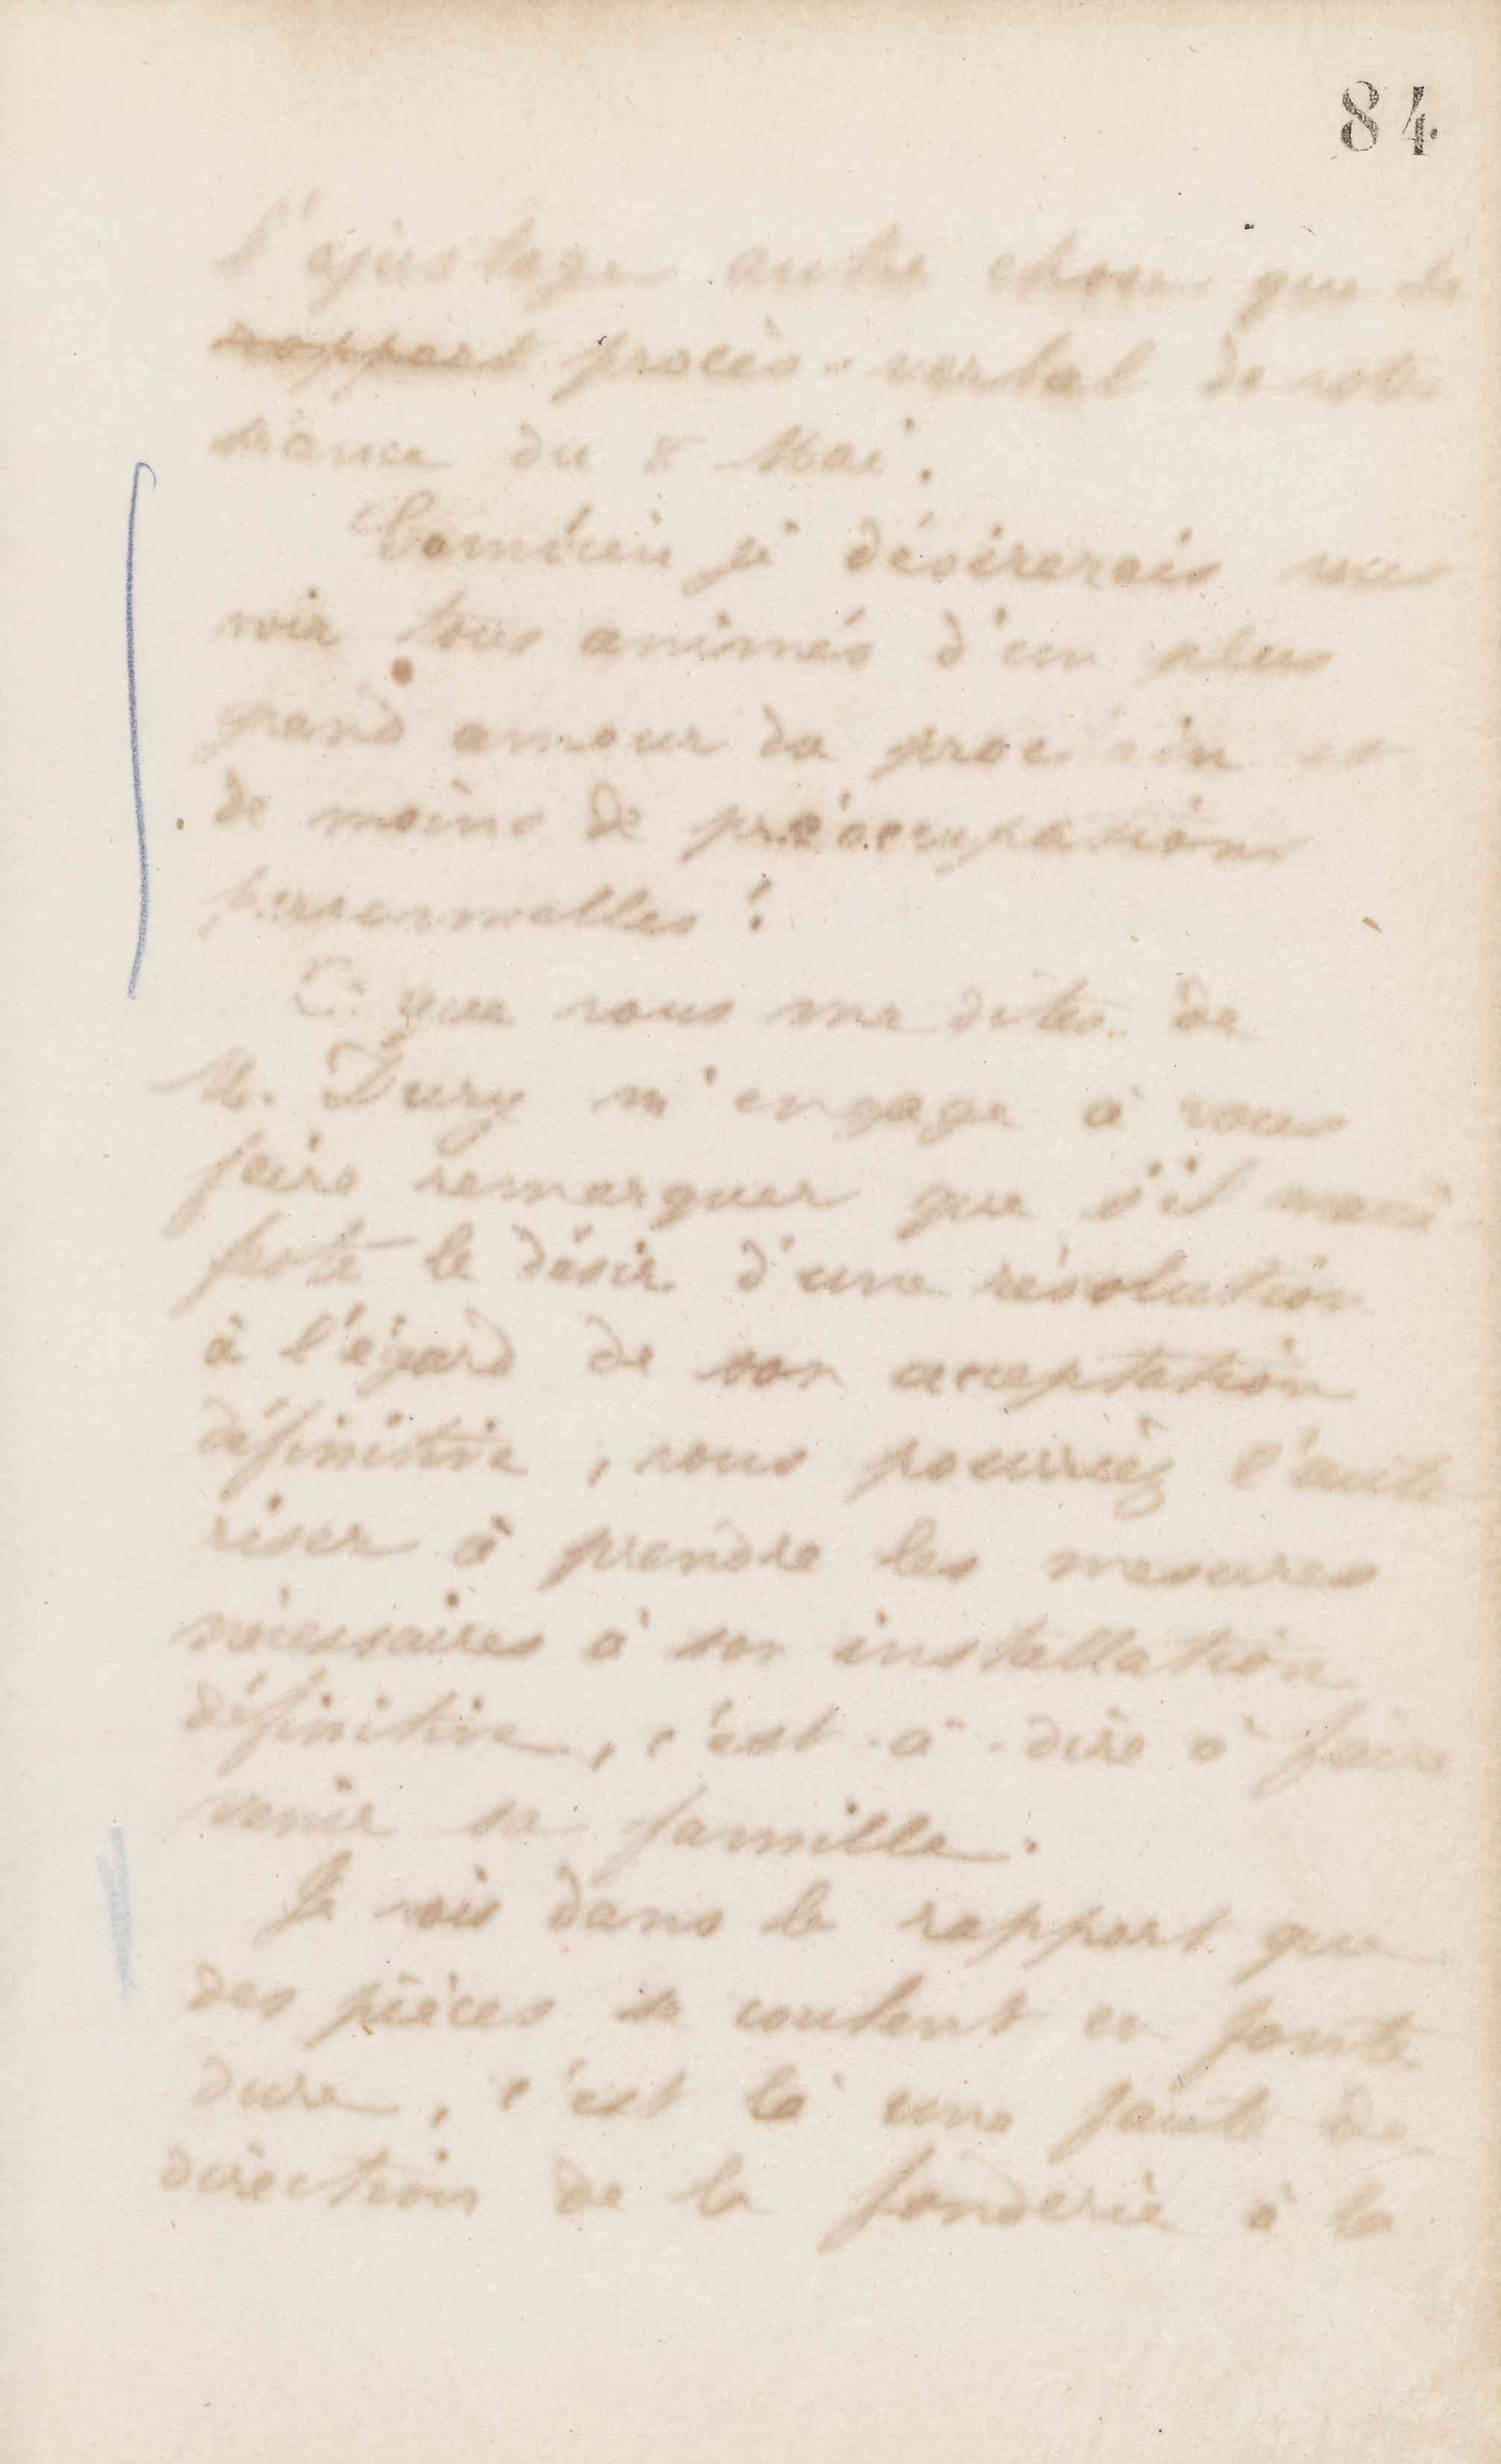 84
l'ajustage autre chose que le
rappport procès-verbal de votre
séance du 8 Mai.
Combien je désirerais vous
voir tous animés d'un plus
grand amour du prochain et
de moins de préoccupations
personnelles !
Ce que vous me dites de
M. Dury m'engage à vous
faire remarquer que s'il mani
feste le désir d'une résolution
à l'égard de son acceptation
définitive, vous pourriez l'auto
riser à prendre les mesures
nécessaires à son installation
définitive, c'est-à-dire à faire
venir sa famille.
Je vois dans le rapport que
des pièces se coulent en fonte
dure, c'est là une faute de
direction de la fonderie à la